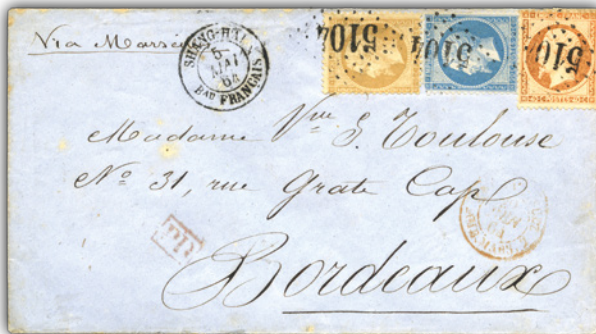 Via Marsei
SHANG-HAI
5
MAI
64
BAU FRANÇAIS
5104
5104
510
Madame Vve S. Toulouse
No 31, rue Grate Cap
Bordeaux
PD